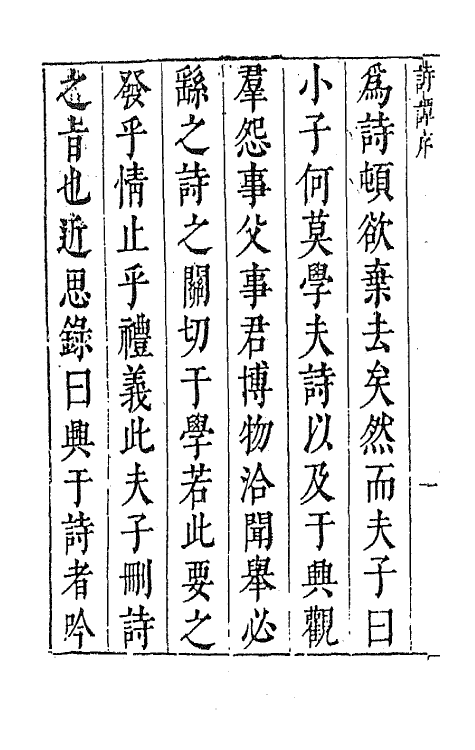 詩譚序
一
為詩頓欲棄去矣然而夫子曰
小子何莫學夫詩以及于興觀
羣怨事父事君博物洽聞舉必
繇之詩之關切于學若此要之
發乎情止乎禮義此夫子刪詩
之旨也近思錄曰興于詩者吟